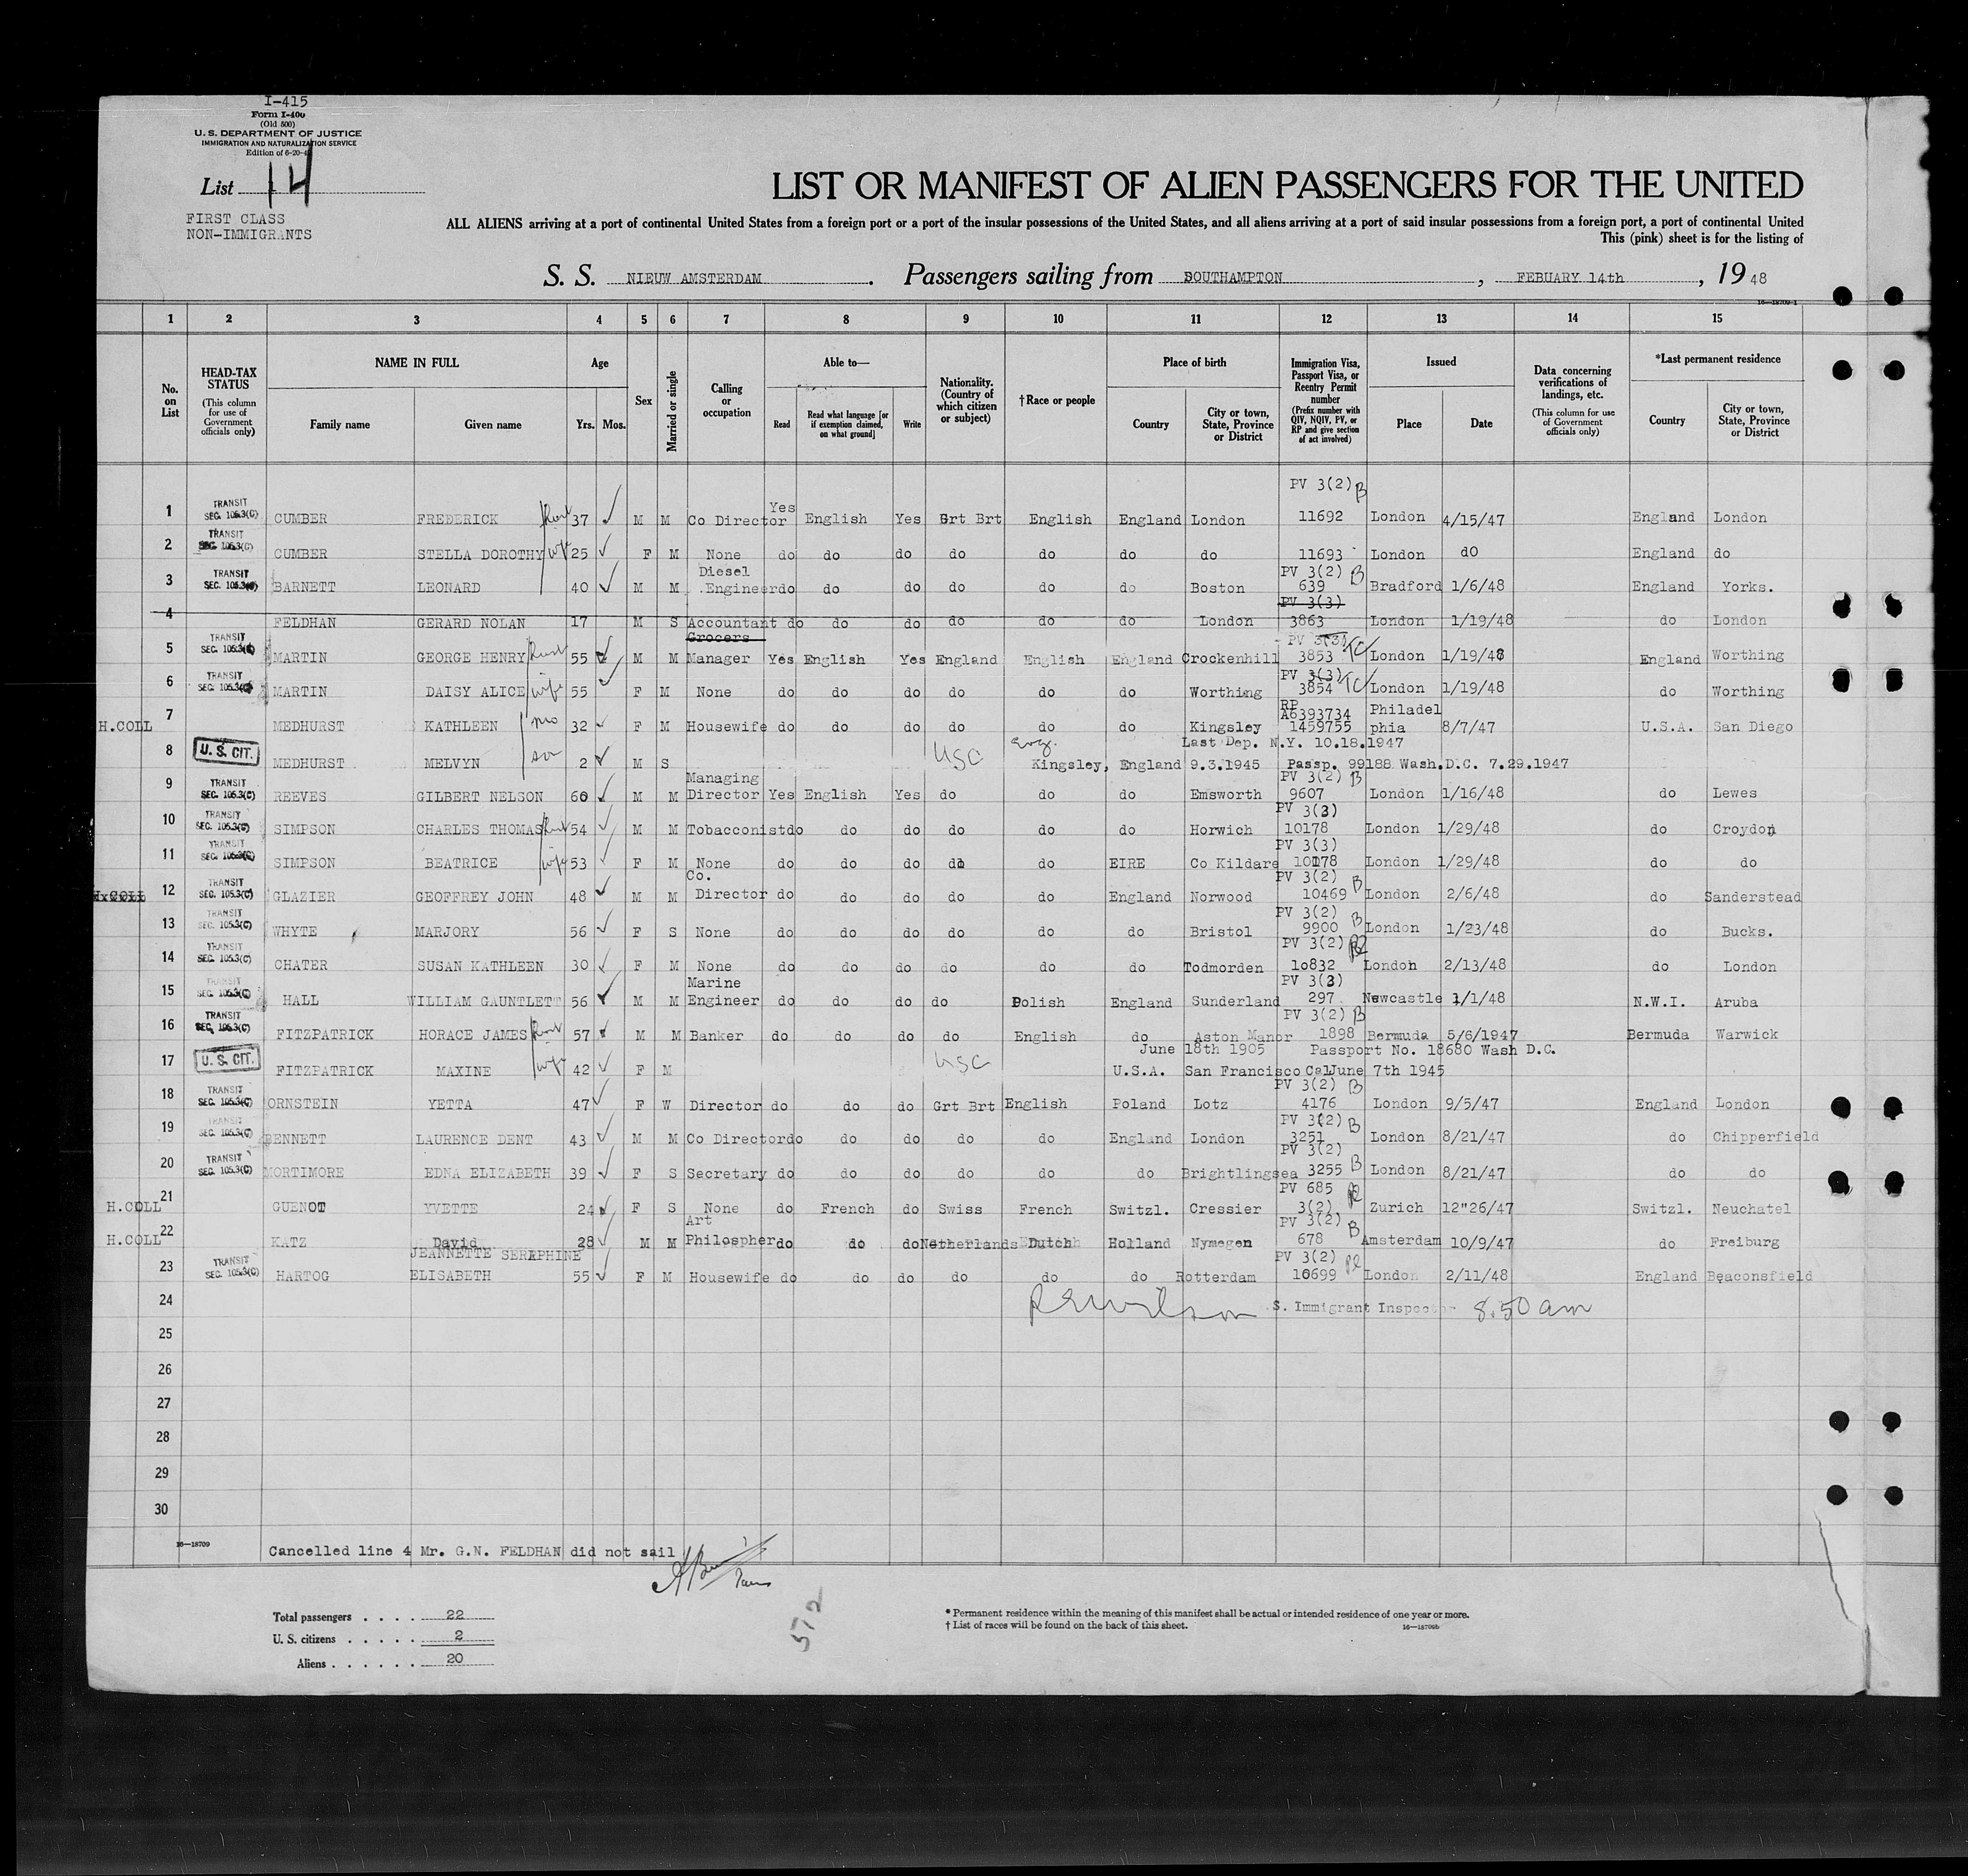 I-415
Form I-400
(Old 500)
U. S. DEPARTMENT OF JUSTICE
IMMIGRATION AND NATURALIZATION SERVICE
Edition of 6-20-4
List 14
FIRST CLASS
NON-IMMIGRANTS
LIST OR MANIFEST OF ALIEN PASSENGERS FOR THE UNITED
ALL ALIENS arriving at a port of continental United States from a foreign port or a port of the insular possessions of the United States, and all aliens arriving at a port of said insular possessions from a foreign port, a port of continental United
This (pink) sheet is for the listing of
S. S. NIEUW AMSTERDAM. Passengers sailing from SOUTHAMPTON, FEBUARY 14th, 19 48
16—18709-1
1 2 3 4 5 6 7 8 9 10 11 12 13 14 15
No. on List
HEAD-TAX STATUS (This column for use of Government officials only)
NAME IN FULL
Family name Given name
Age
Yrs. Mos.
Sex
Married or single
Calling or occupation
Able to—
Read Read what language [or if exemption claimed, on what ground] Write
Nationality. (Country of which citizen or subject)
†Race or people
Place of birth
Country City or town, State, Province or District
Immigration Visa, Passport Visa, or Reentry Permit number (Prefix number with QIV, NQIV, PV, or RP and give section of act involved)
Issued
Place Date
Data concerning verifications of landings, etc. (This column for use of Government officials only)
*Last permanent residence
Country City or town, State, Province or District
1 TRANSIT SEC. 105.3(C) CUMBER FREDERICK 37 M M Co Director Yes English Yes Grt Brt English England London PV 3(2) B 11692 London 4/15/47 England London
2 TRANSIT SEC. 105.3(C) CUMBER STELLA DOROTHY wife 25 F M None do do do do do do do 11693 London do England do
3 TRANSIT SEC. 105.3(C) BARNETT LEONARD 40 M M Diesel Engineer do do do do do do Boston PV 3(2) B 639 Bradford 1/6/48 England Yorks.
4 FELDHAN GERARD NOLAN 17 M S Accountant do do do do do do London PV 3(3) 3863 London 1/19/48 do London
5 TRANSIT SEC. 105.3(C) MARTIN GEORGE HENRY 55 M M Grocers Manager Yes English Yes England English England Crockenhill PV 3(3) TC 3853 London 1/19/48 England Worthing
6 TRANSIT SEC. 105.3(C) MARTIN DAISY ALICE wife 55 F M None do do do do do do Worthing PV 3(3) TC 3854 London 1/19/48 do Worthing
H.COLL 7 MEDHURST KATHLEEN mo 32 F M Housewife do do do do do do Kingsley RP A6393734 1459755 Philadel phia 8/7/47 U.S.A. San Diego
Last Dep. N.Y. 10.18.1947
8 U. S. CIT. MEDHURST MELVYN son 2 M S USC Eng. Kingsley, England 9.3.1945 Passp. 99188 Wash.D.C. 7.29.1947
9 TRANSIT SEC. 105.3(C) REEVES GILBERT NELSON 60 M M Managing Director Yes English Yes do do do Emsworth PV 3(2) B 9607 London 1/16/48 do Lewes
10 TRANSIT SEC. 105.3(C) SIMPSON CHARLES THOMAS 54 M M Tobacconist do do do do do do Horwich PV 3(3) 10178 London 1/29/48 do Croydon
11 TRANSIT SEC. 105.3(C) SIMPSON BEATRICE wife 53 F M None do do do do do EIRE Co Kildare PV 3(3) 10178 London 1/29/48 do do
H.COLL 12 TRANSIT SEC. 105.3(C) GLAZIER GEOFFREY JOHN 48 M M Co. Director do do do do do England Norwood PV 3(2) B 10469 London 2/6/48 do Sanderstead
13 TRANSIT SEC. 105.3(C) WHYTE MARJORY 56 F S None do do do do do do Bristol PV 3(2) B 9900 London 1/23/48 do Bucks.
14 TRANSIT SEC. 105.3(C) CHATER SUSAN KATHLEEN 30 F M None do do do do do do Todmorden PV 3(2) 10832 London 2/13/48 do London
15 TRANSIT SEC. 105.3(C) HALL WILLIAM GAUNTLETT 56 M M Marine Engineer do do do do Polish England Sunderland PV 3(3) 297 Newcastle 1/1/48 N.W.I. Aruba
16 TRANSIT SEC. 105.3(C) FITZPATRICK HORACE JAMES 57 M M Banker do do do do English do Aston Manor PV 3(2) B 1898 Bermuda 5/6/1947 Bermuda Warwick
June 18th 1905 Passport No. 18680 Wash D.C.
17 U. S. CIT. FITZPATRICK MAXINE wife 42 F M USC U.S.A. San Francisco Cal June 7th 1945
18 TRANSIT SEC. 105.3(C) ORNSTEIN YETTA 47 F W Director do do do Grt Brt English Poland Lotz PV 3(2) B 4176 London 9/5/47 England London
19 TRANSIT SEC. 105.3(C) BENNETT LAURENCE DENT 43 M M Co Director do do do do do England London PV 3(2) B 3251 London 8/21/47 do Chipperfield
20 TRANSIT SEC. 105.3(C) MORTIMORE EDNA ELIZABETH 39 F S Secretary do do do do do do Brightlingsea PV 3(2) B 3255 London 8/21/47 do do
H.COLL 21 GUENOT YVETTE 24 F S None do French do Swiss French Switzl. Cressier PV 685 3(2) Zurich 12"26/47 Switzl. Neuchatel
H.COLL 22 KATZ David 28 M M Art Philospher do do do Netherlands Dutch Holland Nymegen PV 3(2) B 678 Amsterdam 10/9/47 do Freiburg
23 TRANSIT SEC. 105.3(C) HARTOG JEANNETTE SERAPHINE ELISABETH 55 F M Housewife do do do do do do Rotterdam PV 3(2) 10699 London 2/11/48 England Beaconsfield
24 REWilson S. Immigrant Inspector 8.50 am
25
26
27
28
29
30
16—18709
Cancelled line 4 Mr. G.N. FELDHAN did not sail
Total passengers . . . . 22
U. S. citizens . . . . . 2
Aliens . . . . . . 20
572
* Permanent residence within the meaning of this manifest shall be actual or intended residence of one year or more.
† List of races will be found on the back of this sheet.
16—18709b